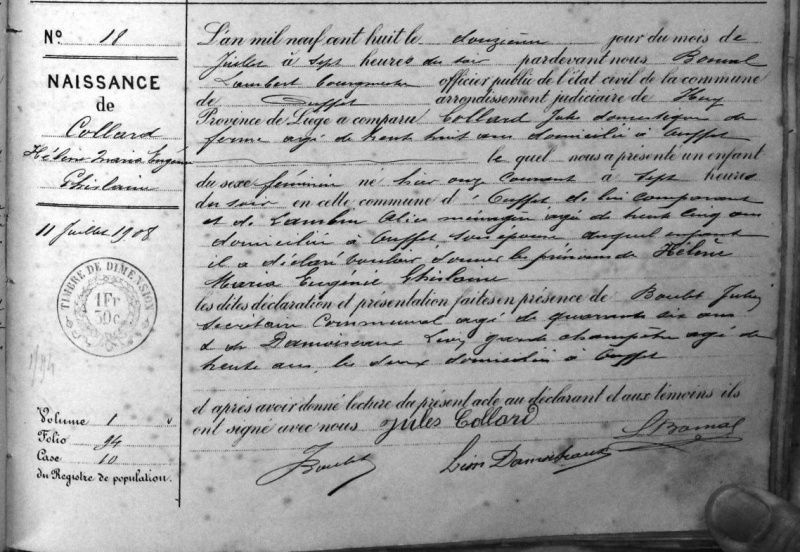 N° 18
NAISSANCE
de
Collard
Hélène Maria Eugénie
Ghislaine
11 Juillet 1908
TIMBRE DE DIMENSION
1Fr
50c
1/94
Volume 1
Folio 94
Case 10
du Registre de population.
L'an mil neuf cent huit le douzième jour du mois de
Juillet à sept heures du soir pardevant nous
Lambert bourgmestre officier public de l'état civil de la commune
de Ouffet arrondissement judiciaire de Huy
Province de Liège a comparu Collard Jules domestique de
ferme agé de trente huit ans domicilié à Ouffet
le quel nous a présenté un enfant
du sexe féminin né hier onze courant à sept heures
du soir en cette commune d'Ouffet de lui comparant
et de Lambin Alice ménagère agée de trente cinq ans
domiciliée à Ouffet, son épouse auquel enfant
il a déclaré vouloir donner les prénoms de Hélène
Maria Eugénie Ghislaine
les dites déclaration et présentation faites en présence de Boulet Jules
secrétaire communal agé de quarante six ans
& de Damoiseaux Léon, garde champêtre agé de
trente ans, les deux domiciliés à Ouffet
et après avoir donné lecture du présent acte au déclarant et aux témoins ils
ont signé avec nous Jules Collard
JBoulet Léon Damoiseaux